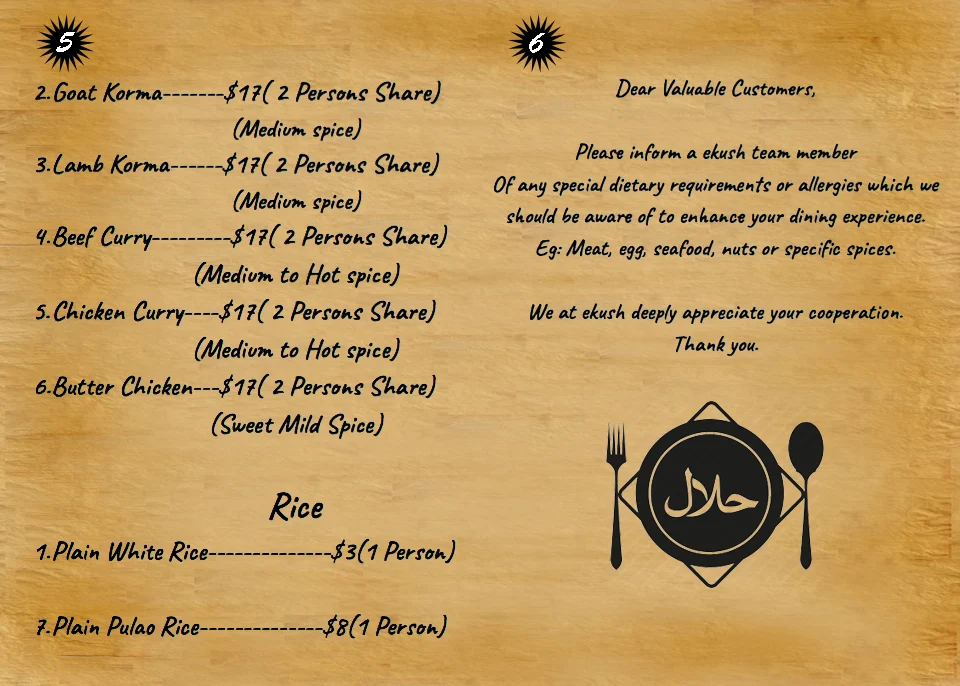 5
2.Goat Korma-------$17( 2 Persons Share)
(Medium spice)
3.Lamb Korma------$17( 2 Persons Share)
(Medium spice)
4.Beef Curry---------$17( 2 Persons Share)
(Medium to Hot spice)
5.Chicken Curry----$17( 2 Persons Share)
(Medium to Hot spice)
6.Butter Chicken---$17( 2 Persons Share)
(Sweet Mild Spice)
Rice
1.Plain White Rice--------------$3(1 Person)
7.Plain Pulao Rice--------------$8(1 Person)
6
Dear Valuable Customers,
Please inform a ekush team member
Of any special dietary requirements or allergies which we
should be aware of to enhance your dining experience.
Eg: Meat, egg, seafood, nuts or specific spices.
We at ekush deeply appreciate your cooperation.
Thank you.
حلال